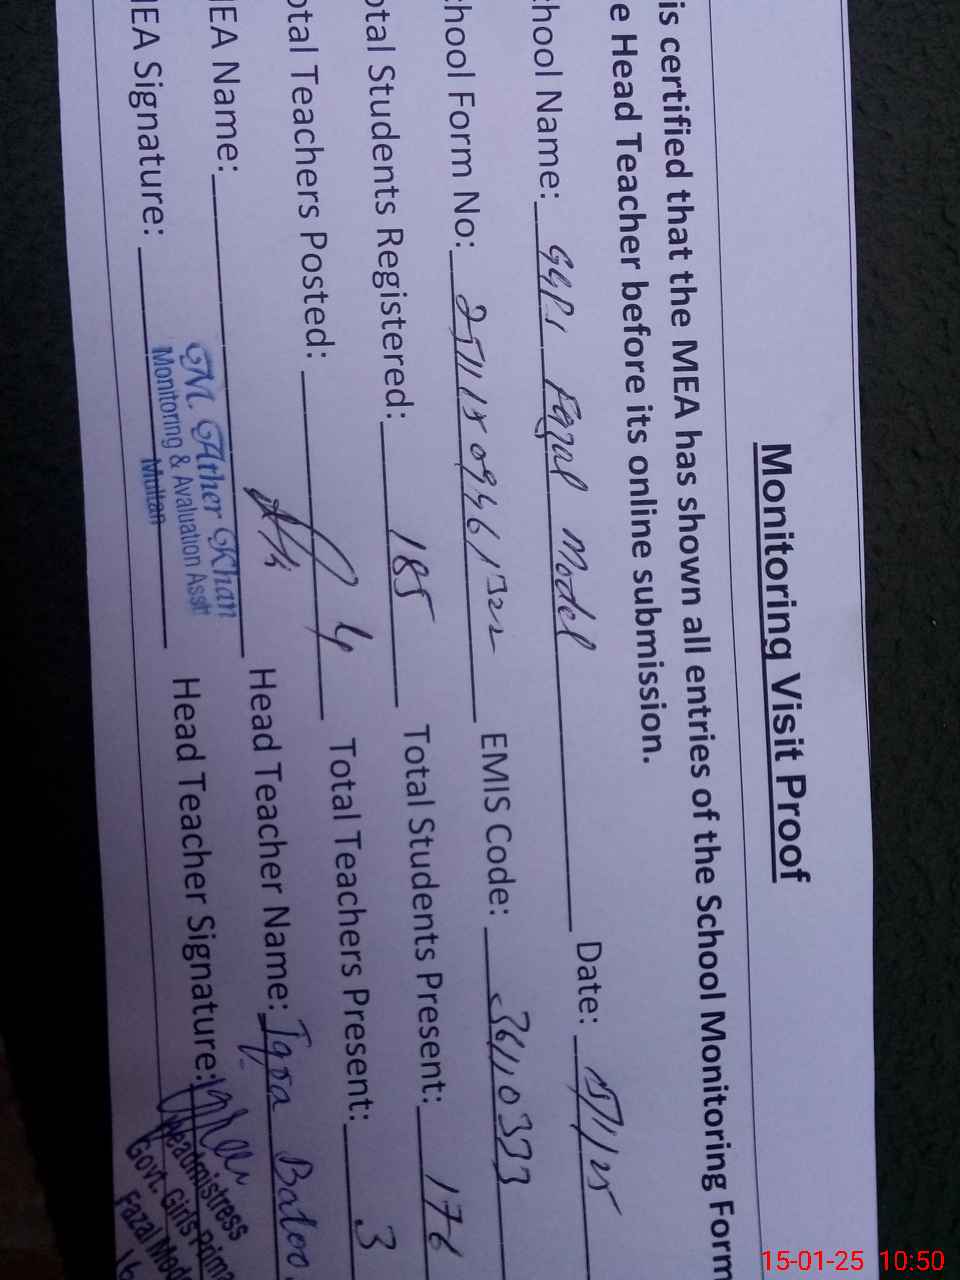 Monitoring Visit Proof
is certified that the MEA has shown all entries of the School Monitoring Form
e Head Teacher before its online submission.
hool Name: GGPS Fazal Model Date: 15/1/25
hool Form No: EMIS Code: 36110333
otal Students Registered: 185 Total Students Present: 176
otal Teachers Posted: 4 Total Teachers Present: 3
EA Name: M. Ather Khan Head Teacher Name: Iqra Batool
Monitoring & Avaluation Asstt
Multan
EA Signature: Head Teacher Signature:
Headmistress
Govt. Girls Prima
Fazal Mod
15-01-25 10:50